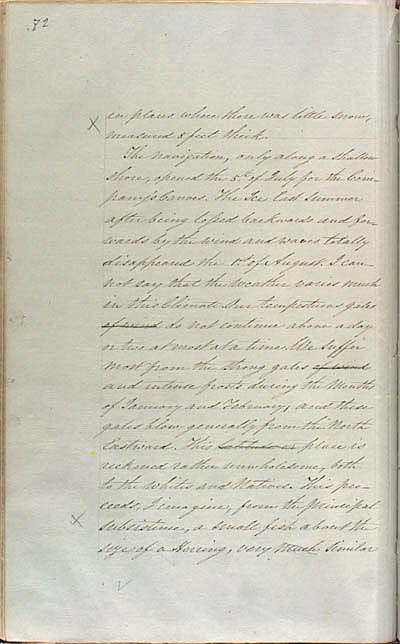 72
in places where there was little snow,
measured 8 feet thick.
The navigation, only along a shallow
shore, opened the 5th of July for the Com-
pany's Canoes. The Ice last Summer
after being tossed backwards and for-
wards by the wind and waves totally
disappeared the 1st of August. I can-
not say that the Weather varies much
in this Climate. Our tempestuous gales
of wind do not continue above a day
or two at most at a time. We suffer
most from the strong gales of wind
and intense frosts during the Months
of January and February, and these
gales blow generally from the North
Eastward. This place is
reckoned rather unwholesome, both
to the Whites and Natives. This pro-
ceeds, I imagine, from the principal
subsistence, a small fish about the
size of a Herring, very much similar